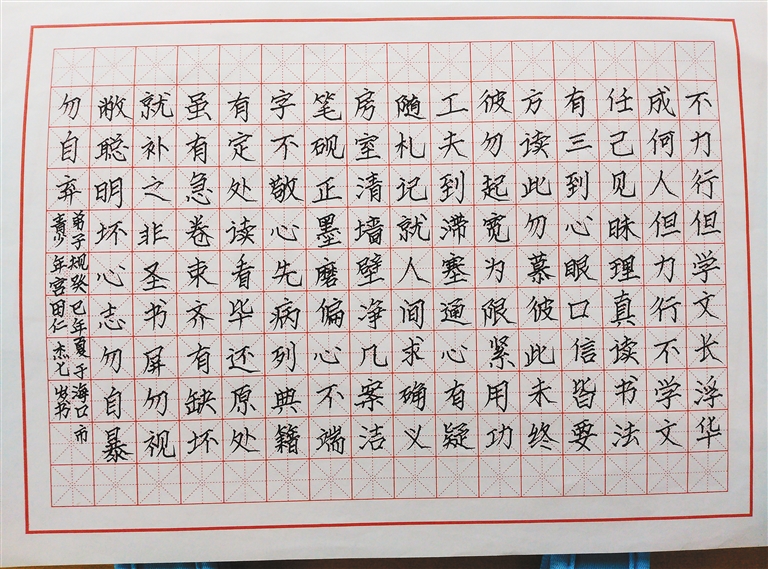 不力行但学文长浮华
成何人但力行不学文
任己见昧理真读书法
有三到心眼口信皆要
方读此勿慕彼此未终
彼勿起宽为限紧用功
工夫到滞塞通心有疑
随札记就人间求确义
房室清墙壁净几案洁
笔砚正墨磨偏心不端
字不敬心先病列典籍
有定处读看毕还原处
虽有急卷束齐有缺坏
就补之非圣书屏勿视
敝聪明坏心志勿自暴
勿自弃
弟子规癸巳年夏于海口市
青少年宫田仁杰七岁书